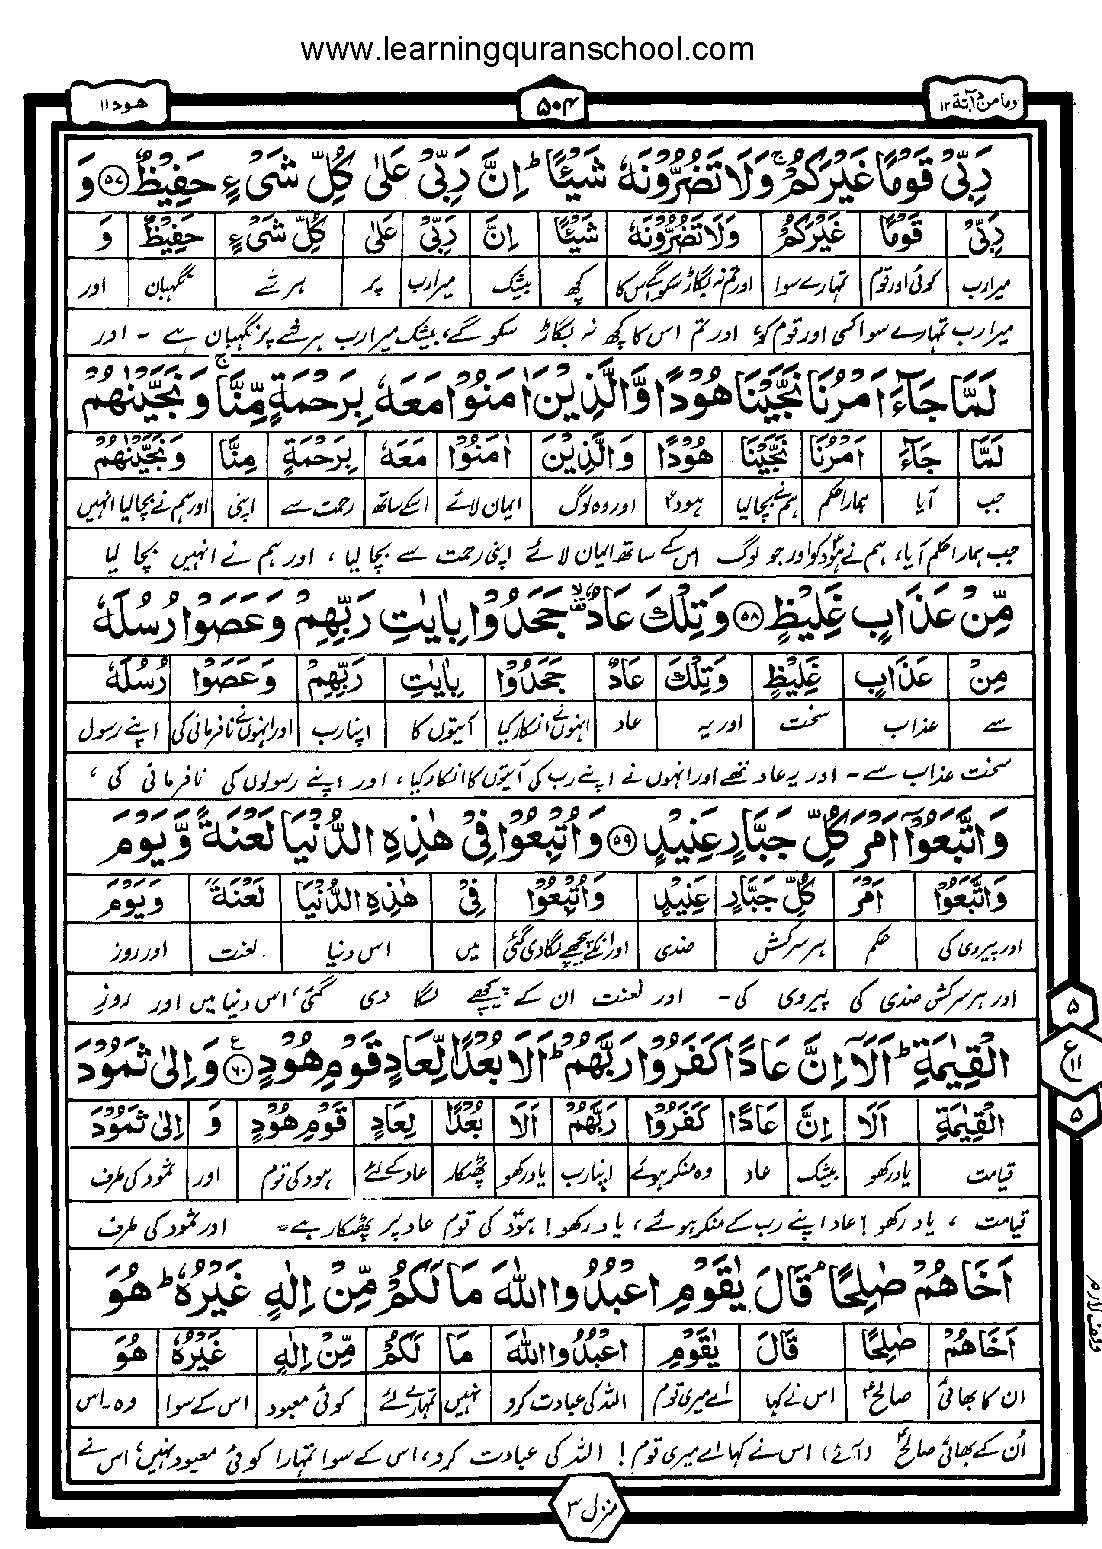 www.learningquranschool.com
وما من دآبة ۱۲
۵۰۴
هود ۱۱
رَبِّیْ قَوْمًا غَیْرَكُمْ ۚ وَلَا تَضُرُّوْنَهٗ شَیْـًٔا ؕ اِنَّ رَبِّیْ عَلٰی كُلِّ شَیْءٍ حَفِیْظٌ ۵۷ وَ
رَبِّیْ قَوْمًا غَیْرَكُمْ وَلَا تَضُرُّوْنَهٗ شَیْـًٔا اِنَّ رَبِّیْ عَلٰی كُلِّ شَیْءٍ حَفِیْظٌ وَ
میرا رب کوئی اور قوم تمہارے سوا اور تم نہ بگاڑ سکو گے اس کا کچھ بیشک میرا رب پر ہر شے نگہبان اور
میرا رب تمہارے سوا کسی اور قوم کو اور تم اس کا کچھ نہ بگاڑ سکو گے، بیشک میرا رب ہر شے پر نگہبان ہے - اور
لَمَّا جَآءَ اَمْرُنَا نَجَّیْنَا هُوْدًا وَّالَّذِیْنَ اٰمَنُوْا مَعَهٗ بِرَحْمَةٍ مِّنَّا ۚ وَنَجَّیْنٰهُمْ
لَمَّا جَآءَ اَمْرُنَا نَجَّیْنَا هُوْدًا وَالَّذِیْنَ اٰمَنُوْا مَعَهٗ بِرَحْمَةٍ مِنَّا وَنَجَّیْنٰهُمْ
جب آیا ہمارا حکم ہم نے بچا لیا ہودؑ اور وہ لوگ ایمان لائے اسکے ساتھ رحمت سے اپنی اور ہم نے بچا لیا انہیں
جب ہمارا حکم آیا، ہم نے ہودؑ کو اور جو لوگ اس کے ساتھ ایمان لائے اپنی رحمت سے بچا لیا ، اور ہم نے انہیں بچا لیا
مِّنْ عَذَابٍ غَلِیْظٍ ۵۸ وَتِلْكَ عَادٌ جَحَدُوْا بِاٰیٰتِ رَبِّهِمْ وَعَصَوْا رُسُلَهٗ
مِنْ عَذَابٍ غَلِیْظٍ وَتِلْكَ عَادٌ جَحَدُوْا بِاٰیٰتِ رَبِّهِمْ وَعَصَوْا رُسُلَهٗ
سے عذاب سخت اور یہ عاد انہوں نے انکار کیا آیتوں کا اپنا رب اور انہوں نے نافرمانی کی اپنے رسول
سخت عذاب سے - اور یہ عاد تھے اور انہوں نے اپنے رب کی آیتوں کا انکار کیا ، اور اپنے رسولوں کی نافرمانی کی ،
وَاتَّبَعُوْۤا اَمْرَ كُلِّ جَبَّارٍ عَنِیْدٍ ۵۹ وَاُتْبِعُوْا فِیْ هٰذِهِ الدُّنْیَا لَعْنَةً وَّیَوْمَ
وَاتَّبَعُوْا اَمْرَ كُلِّ جَبَّارٍ عَنِیْدٍ وَاُتْبِعُوْا فِیْ هٰذِهِ الدُّنْیَا لَعْنَةً وَیَوْمَ
اور پیروی کی حکم ہر سرکش ضدی اور انکے پیچھے لگا دی گئی میں اس دنیا لعنت اور روز
اور ہر سرکش ضدی کی پیروی کی - اور لعنت ان کے پیچھے لگا دی گئی ، اس دنیا میں اور روزِ
الْقِیٰمَةِ ؕ اَلَاۤ اِنَّ عَادًا كَفَرُوْا رَبَّهُمْ ؕ اَلَا بُعْدًا لِّعَادٍ قَوْمِ هُوْدٍ ۶۰ وَاِلٰی ثَمُوْدَ
الْقِیٰمَةِ اَلَا اِنَّ عَادًا كَفَرُوْا رَبَّهُمْ اَلَا بُعْدًا لِعَادٍ قَوْمِ هُوْدٍ وَ اِلٰی ثَمُوْدَ
قیامت یاد رکھو بیشک عاد وہ منکر ہوئے اپنا رب یاد رکھو پھٹکار عاد کے لئے ہود کی قوم اور ثمود کی طرف
قیامت ، یاد رکھو ! عاد اپنے رب کے منکر ہوئے ، یاد رکھو ! ہودؑ کی قوم عاد پر پھٹکار ہے - اور ثمود کی طرف
اَخَاهُمْ صٰلِحًا ۘ قَالَ یٰقَوْمِ اعْبُدُوا اللّٰهَ مَا لَكُمْ مِّنْ اِلٰهٍ غَیْرُهٗ ؕ هُوَ
اَخَاهُمْ صٰلِحًا قَالَ یٰقَوْمِ اعْبُدُوا اللّٰهَ مَا لَكُمْ مِّنْ اِلٰهٍ غَیْرُهٗ هُوَ
ان کا بھائی صالحؑ اس نے کہا اے میری قوم اللہ کی عبادت کرو نہیں تمہارے لئے کوئی معبود اس کے سوا وہ - اس
اُن کے بھائی صالحؑ (آئے) اس نے کہا اے میری قوم ! اللہ کی عبادت کرو ، اس کے سوا تمہارا کوئی معبود نہیں ، اس نے
۵
ع
۱۱
۵
وقف لازم
منزل ۳